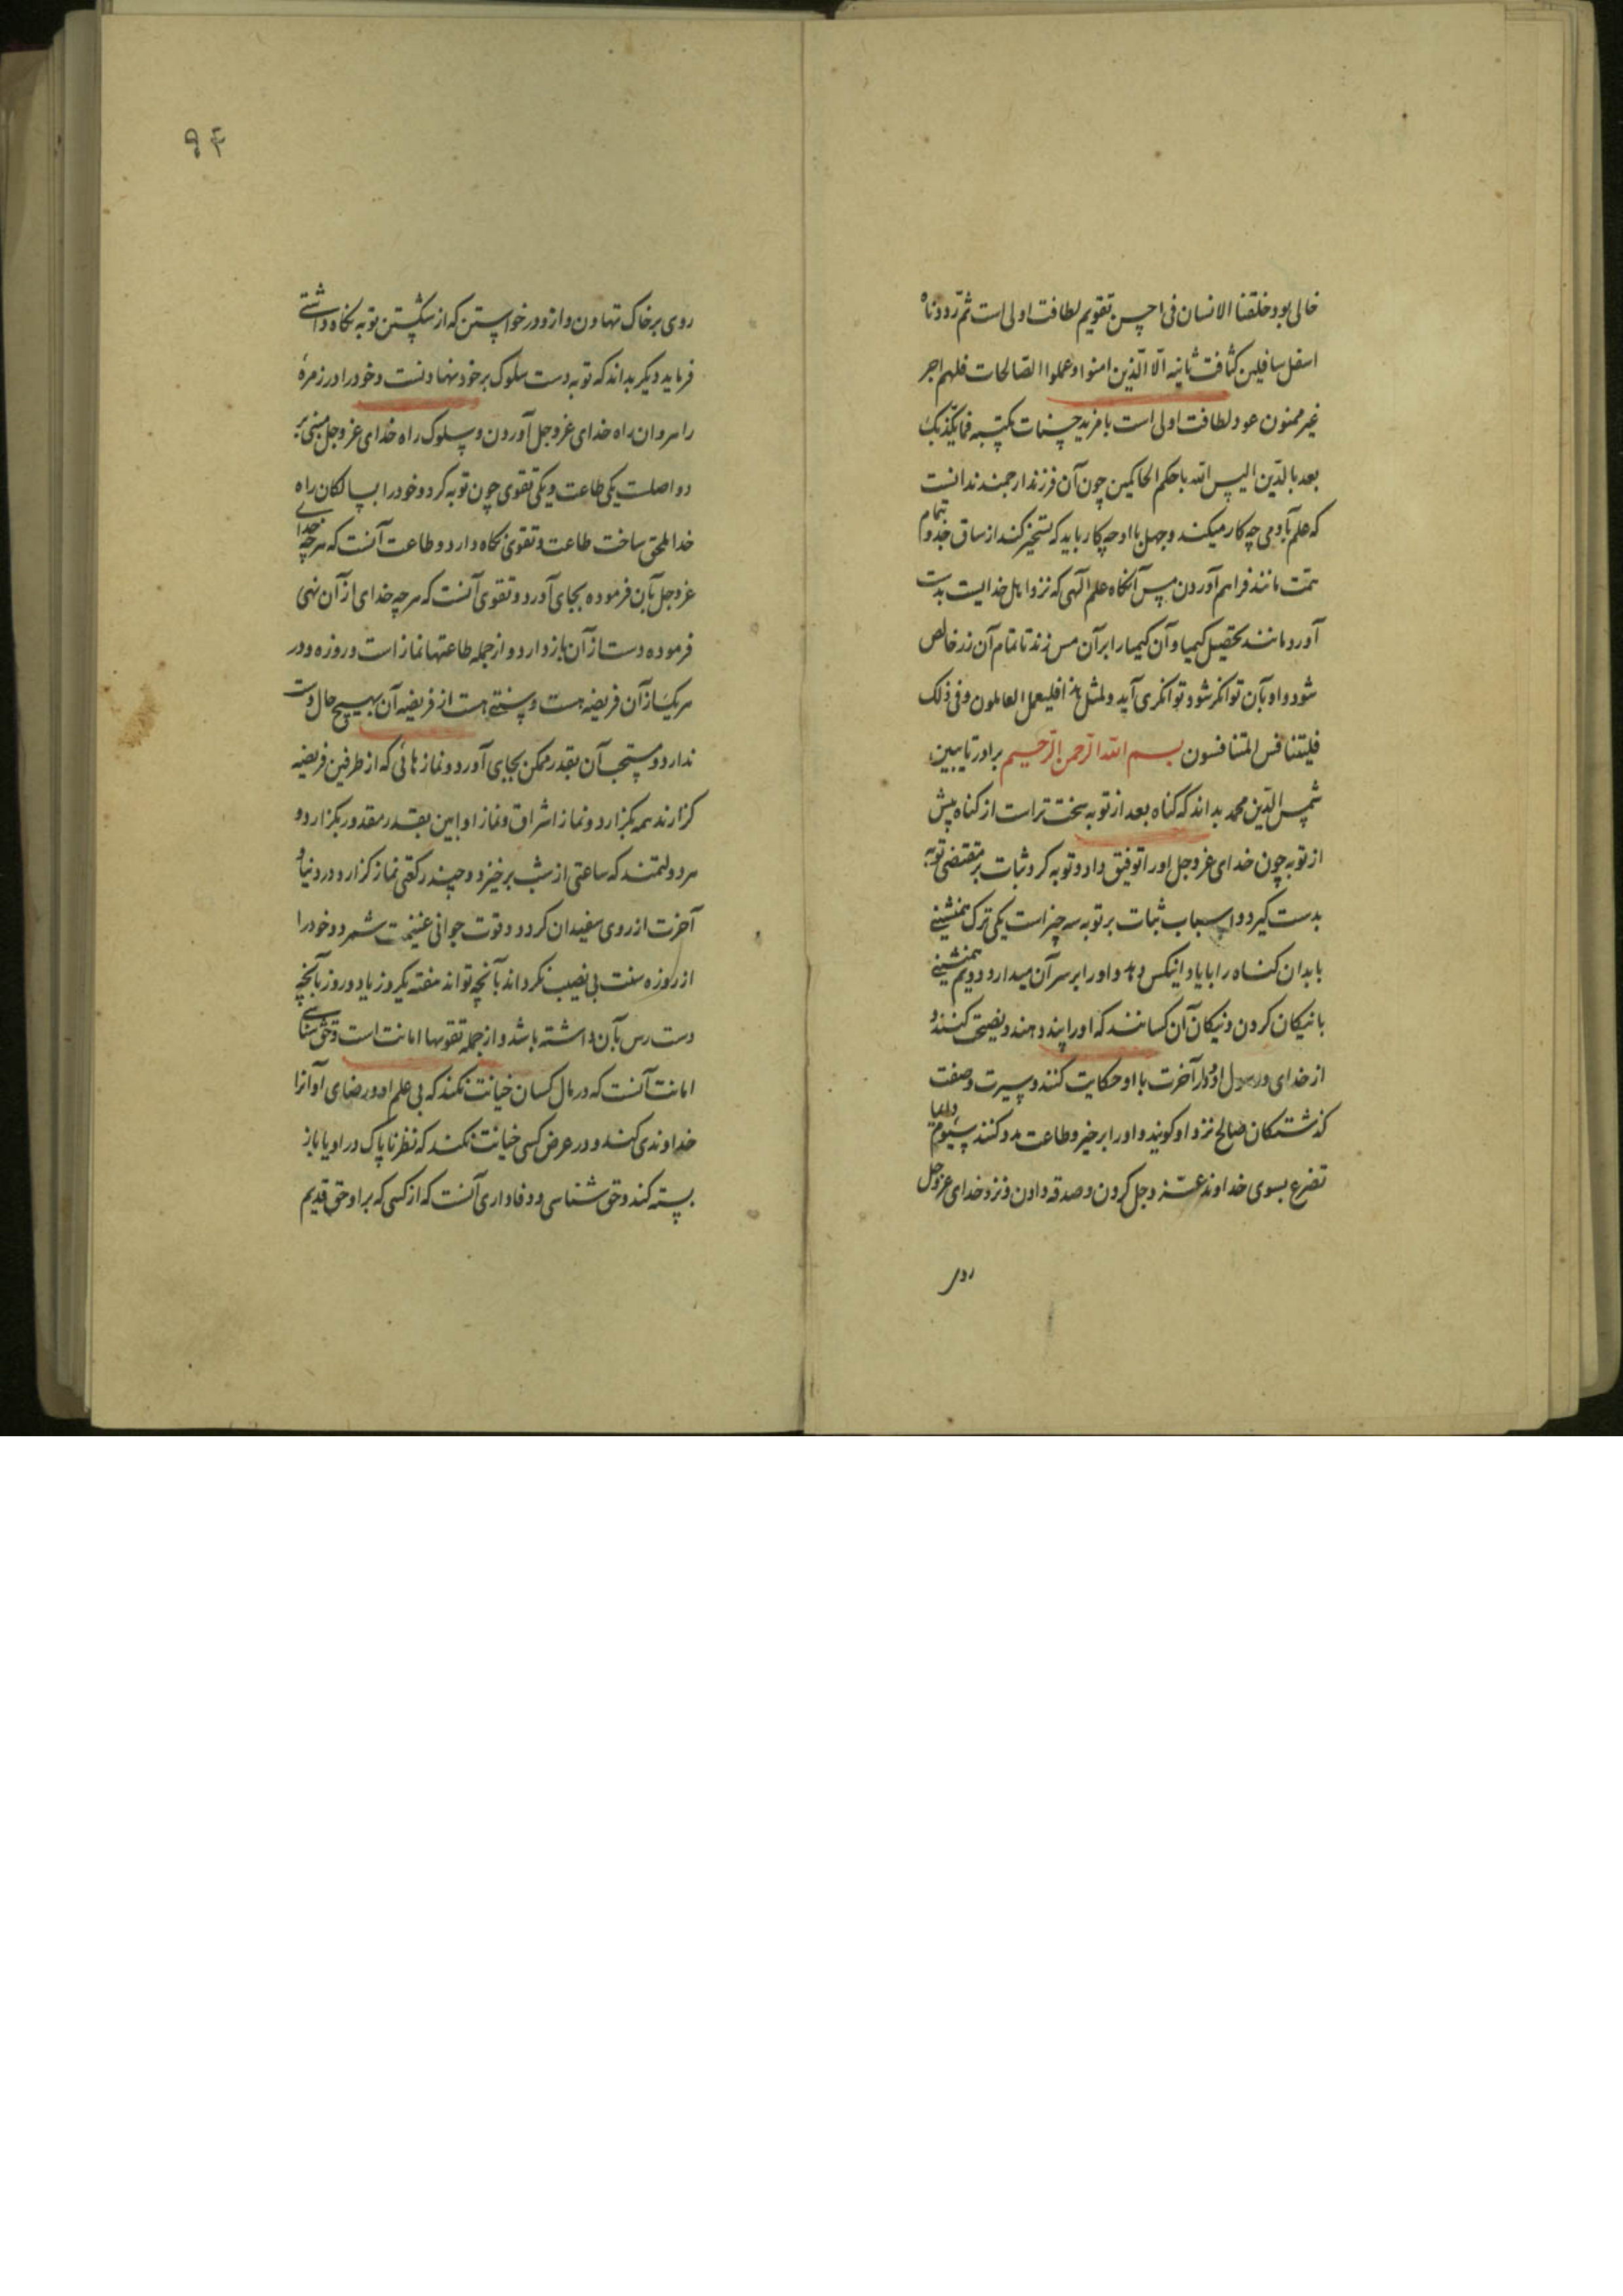 خالی بود خلقنا الانسان فی احسن تقویم لطافت اولی است ثمّ رددناه
اسفل سافلین کثافت ثانیه الّا الّذین امنوا و عملوا الصّالحات فلهم اجر
غیر ممنون عود لطافت اولی است با مزید حسنات مکتسبه فما یکذّبک
بعد بالدّین الیس الله باحکم الحاکمین چون آن فرزند ارجمند ندانست
که علم بآدمی چه کار میکند و جهل با او چه کار باید که بتمام
همّت مانند فراهم آوردن مس آنکاه علم الهی که نزد اهل خدایست بدست
آورد مانند تحصیل کیمیا و آن کیمیا را بر آن مس زند تا تمام آن زر خالص
شود و او بآن توانکر شود توانکری آید و لمثل هذا فلیعمل العاملون و فی ذلک
فلیتنافس المتنافسون بسم الله الرحمن الرحیم برادر تایبین
شمس الدّین محمد بداند که کناه بعد از توبه سخت تر است از کناه پیش
از توبه چون خدای عزوجل او را توفیق داد و توبه کرد ثبات بر مقتضی توبه
بدست کیرد و اسباب ثبات بر توبه سه چیز است یکی ترک همنشینی
با بدان کناه را با یاد انیکس دهد و او را بر سر آن میدارد دویم همنشینی
با نیکان کردن و نیکان آن کسانند که او را پند دهند و نصیحت کنند و
از خدای و رسول او و دار آخرت با او حکایت کنند و سیرت و صفت
کذشتکان صالح نزد او کویند و او را بر خیر و طاعت مدد کنند سیوم دایما
تضرع بسوی خداوند عزّ وجل کردن و صدقه دادن و نزد خدای عزوجل
روی
۹۴
روی بر خاک نهادن و ازو در خواستن که از شکستن توبه نکاه داشتی
فرماید دیکر بداند که توبه دست سلوک بر خود نهادنست و خود را در زمرهٔ
راهروان راه خدای عزوجل آوردن و سلوک راه خدای عزوجل مبنی بر
دو اصلست یکی طاعت و یکی تقوی چون توبه کرد و خود را بسالکان راه
خدا ملحق ساخت طاعت و تقوی نکاه دارد و طاعت آنست که هر چه خدای
عزوجل بآن فرموده بجای آورد و تقوی آنست که هر چه خدای از آن نهی
فرموده دست از آن باز دارد و از جمله طاعتها نماز است و روزه و در
هر یک از آن فریضه هست و سنتی هست از فریضه آن بهیچ حال دست
ندارد و مستحب آن بقدر ممکن بجای آورد و نمازهائی که از طرفین فریضه
کزارند همه بکزارد و نماز اشراق و نماز اوابین بقدر مقدور بکزارد و
هر دولتمند که ساعتی از شب برخیزد و چند رکعتی نماز کزارد در دنیا و
آخرت از روی سفیدان کردد و قوت جوانی غنیمت شمرد و خود را
از روزه سنت بی نصیب نکرداند بآنچه تواند هفته یکروز یا دو روز بآنچه
دست رس بآن داشته باشد و از جمله تقویها امانت است و حق شناسی
امانت آنست که در مال کسان خیانت نکند که بی علم او و رضای او آنرا
خداوندی کند و در عرض کسی خیانت نکند که نظر ناپاک در او یا باز
بسته کند و حق شناسی و وفاداری آنست که از کسی که بر او حق قدیم